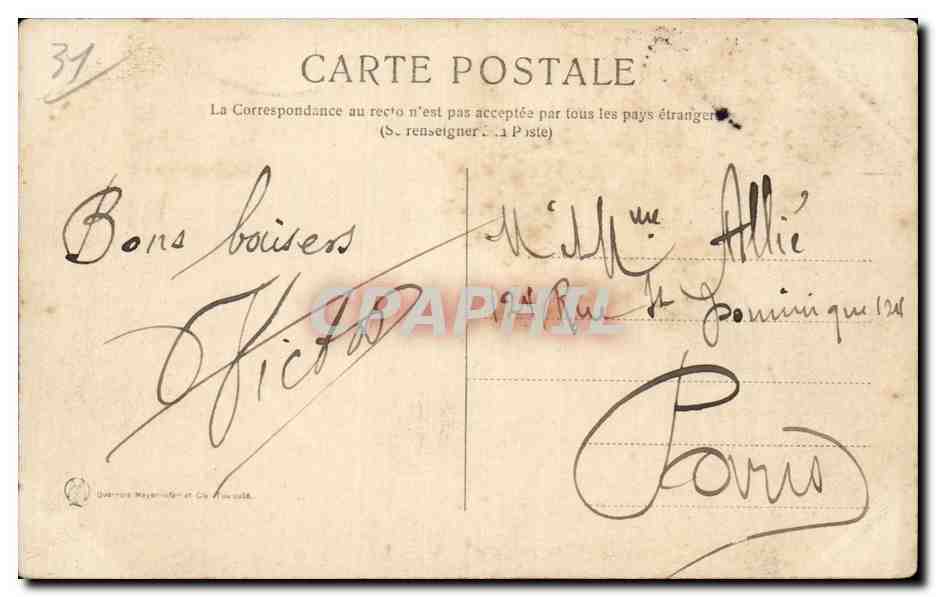 31
CARTE POSTALE
La Correspondance au recto n'est pas acceptée par tous les pays étrangers
(Se renseigner à la Poste)
Bons baisers
Victor
M. et Mme Allié
124 Rue St Dominique 124
Paris
CPAPHIL
et Cie, Toulouse.